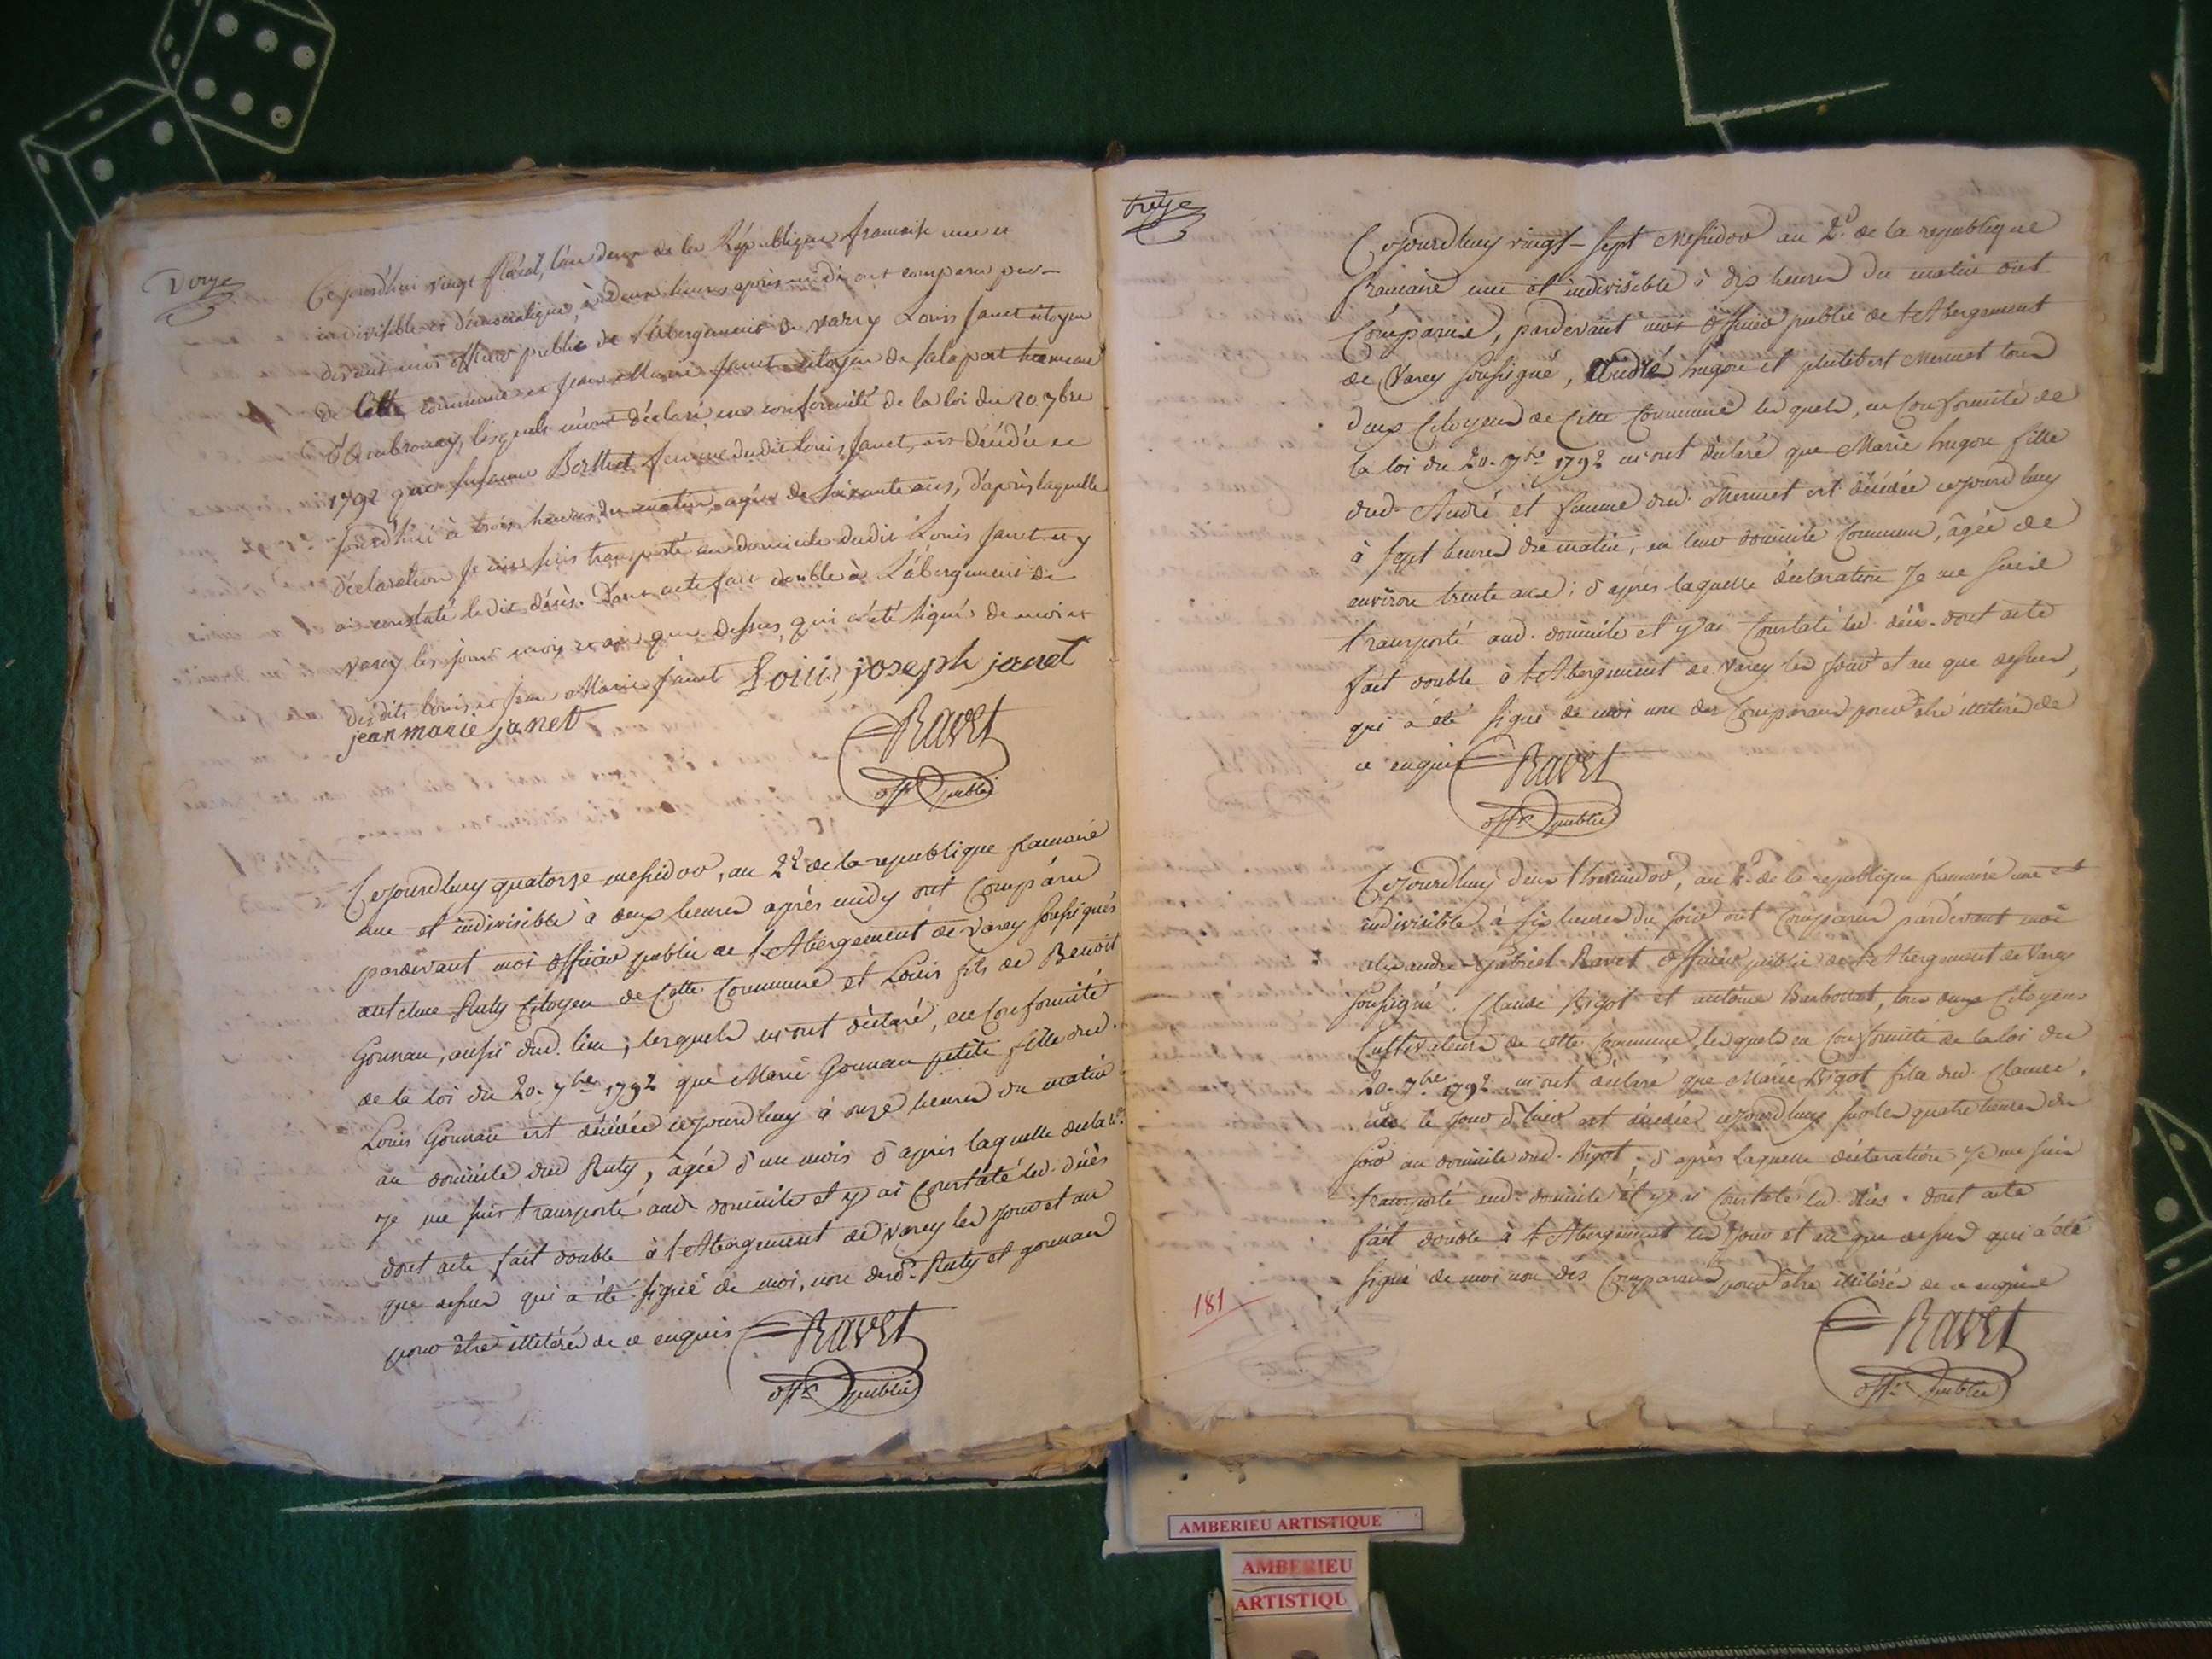 Douze
Cejourd'hui vingt floréal, l'an deux de la République francaise une et
indivisible et démocratique, à deux heures après midi ont comparu par-
devant moi officier public de l'abergement de varey Louis Janet citoyen
de Cette commune et Jean Marie Janet citoyen de hameau
d'Ambronay, lesquels m'ont déclaré en conformité de la loi du 20. 7bre
1792 que Berthet femme dudit Louis Janet, est décédée ce
jourd'hui à trois heures du matin, agée de soixante ans, d'après laquelle
déclaration Je me suis transporté au domicile dudit Louis Janet et y
ai constaté ledit décès. Dont acte fait double à L'abergement de
varey les jour mois et an que dessus, qui a été signé de moi et
desdits Louis et Jean Marie Janet Louis joseph janet
jean marie janet
Ravet
offr public
Cejourdhuy quatorze messidor, an 2d de la republique francaise
une et indivisible à deux heures après midy ont Comparu
pardevant moi officier public de l'Abergement de varey soussignés
antelme Ruty Citoyen de Cette Commune et Louis fils de Benoit
Gonnan, aussi dud. lieu, lesquels m'ont déclaré, en Conformité
de la loi du 20. 7bre 1792 que Marie Gonnan petite fille dud.
Louis Gonnan est décédée cejourdhuy à onze heures du matin
au domicile dud Ruty, agée d'un mois d'après laquelle declaon
Je me suis transporté aud. domicile et y ai Constaté led. décès
dont acte fait double à l'Abergement de varey les jour et an
que dessus qui a été signé de moi, non desds Ruty et gonnan
pour être illitérés de ce enquis
Ravet
offr public
treize
Cejourdhuy vingt-sept Messidor an 2d de la republique
francaise une et indivisible à dix heures du matin ont
Comparus, pardevant moi officier public de l'Abergement
de Varey soussigné, André hugon et philibert Mermet tous
deux Citoyens de Cette Commune lesquels, en Conformité de
la loi du 20. 7bre 1792 m'ont déclaré que Marie hugon fille
dud. André et femme dud. Mermet est décédée cejourdhuy
à sept heures du matin, en leur domicile Commun, âgée de
environ trente ans; d'après laquelle déclaration Je me suis
transporté aud. domicile et y ai Constaté led. décès. dont acte
fait double à l'Abergement de Varey les jour et an que dessus,
qui a été signé de moi non des Comparans pour être illitérés de
ce enquis
Ravet
offr public
Cejourdhuy deux thermidor, an 2d de la republique francaise une et
indivisible, à six heures du soir ont Comparus pardevant moi
alexandre-Gabriel Ravet officier public de l'Abergement de Varey
soussigné. Claude Bigot et antoine Barbollat, tous deux Citoyens
Cultivateurs de cette Commune, lesquels en Conformité de la loi du
20. 7bre 1792 m'ont déclaré que Marie Bigot fille dud. Claude,
née le jour d'hier est décédée cejourdhuy sur les quatre heures du
soir au domicile dud. Bigot, d'après laquelle déclaration Je me suis
transporté aud. domicile et y ai Constaté led. décès. dont acte
fait double à l'Abergement les Jour et an que dessus qui a été
signé de moi non des Comparans pour être illitérés de ce enquis
Ravet
offr public
181
AMBERIEU ARTISTIQUE
AMBERIEU
ARTISTIQU